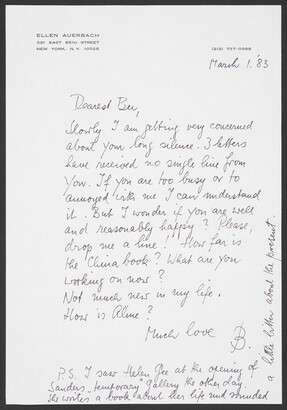 ELLEN AUERBACH
EAST STREET
NEW YORK, N.Y. 10028
(212) 737-0986
March 1. '83
Dearest Ber,
Slowly I am getting very concerned
about your long silence. 3 letters
have received no single line from
you. If you are too busy or to
annoyed with me I can understand
it. But I wonder if you are well
and reasonably happy? Please,
drop me a line! How far is
the China book? What are you
working on now?
Not much new in my life.
How is Aline?
Much love
P.S. I saw Helen Gee at the opening of
Sanders "temporary" gallery the other day.
She writes a book about her life and sounded
a little bitter about the present.